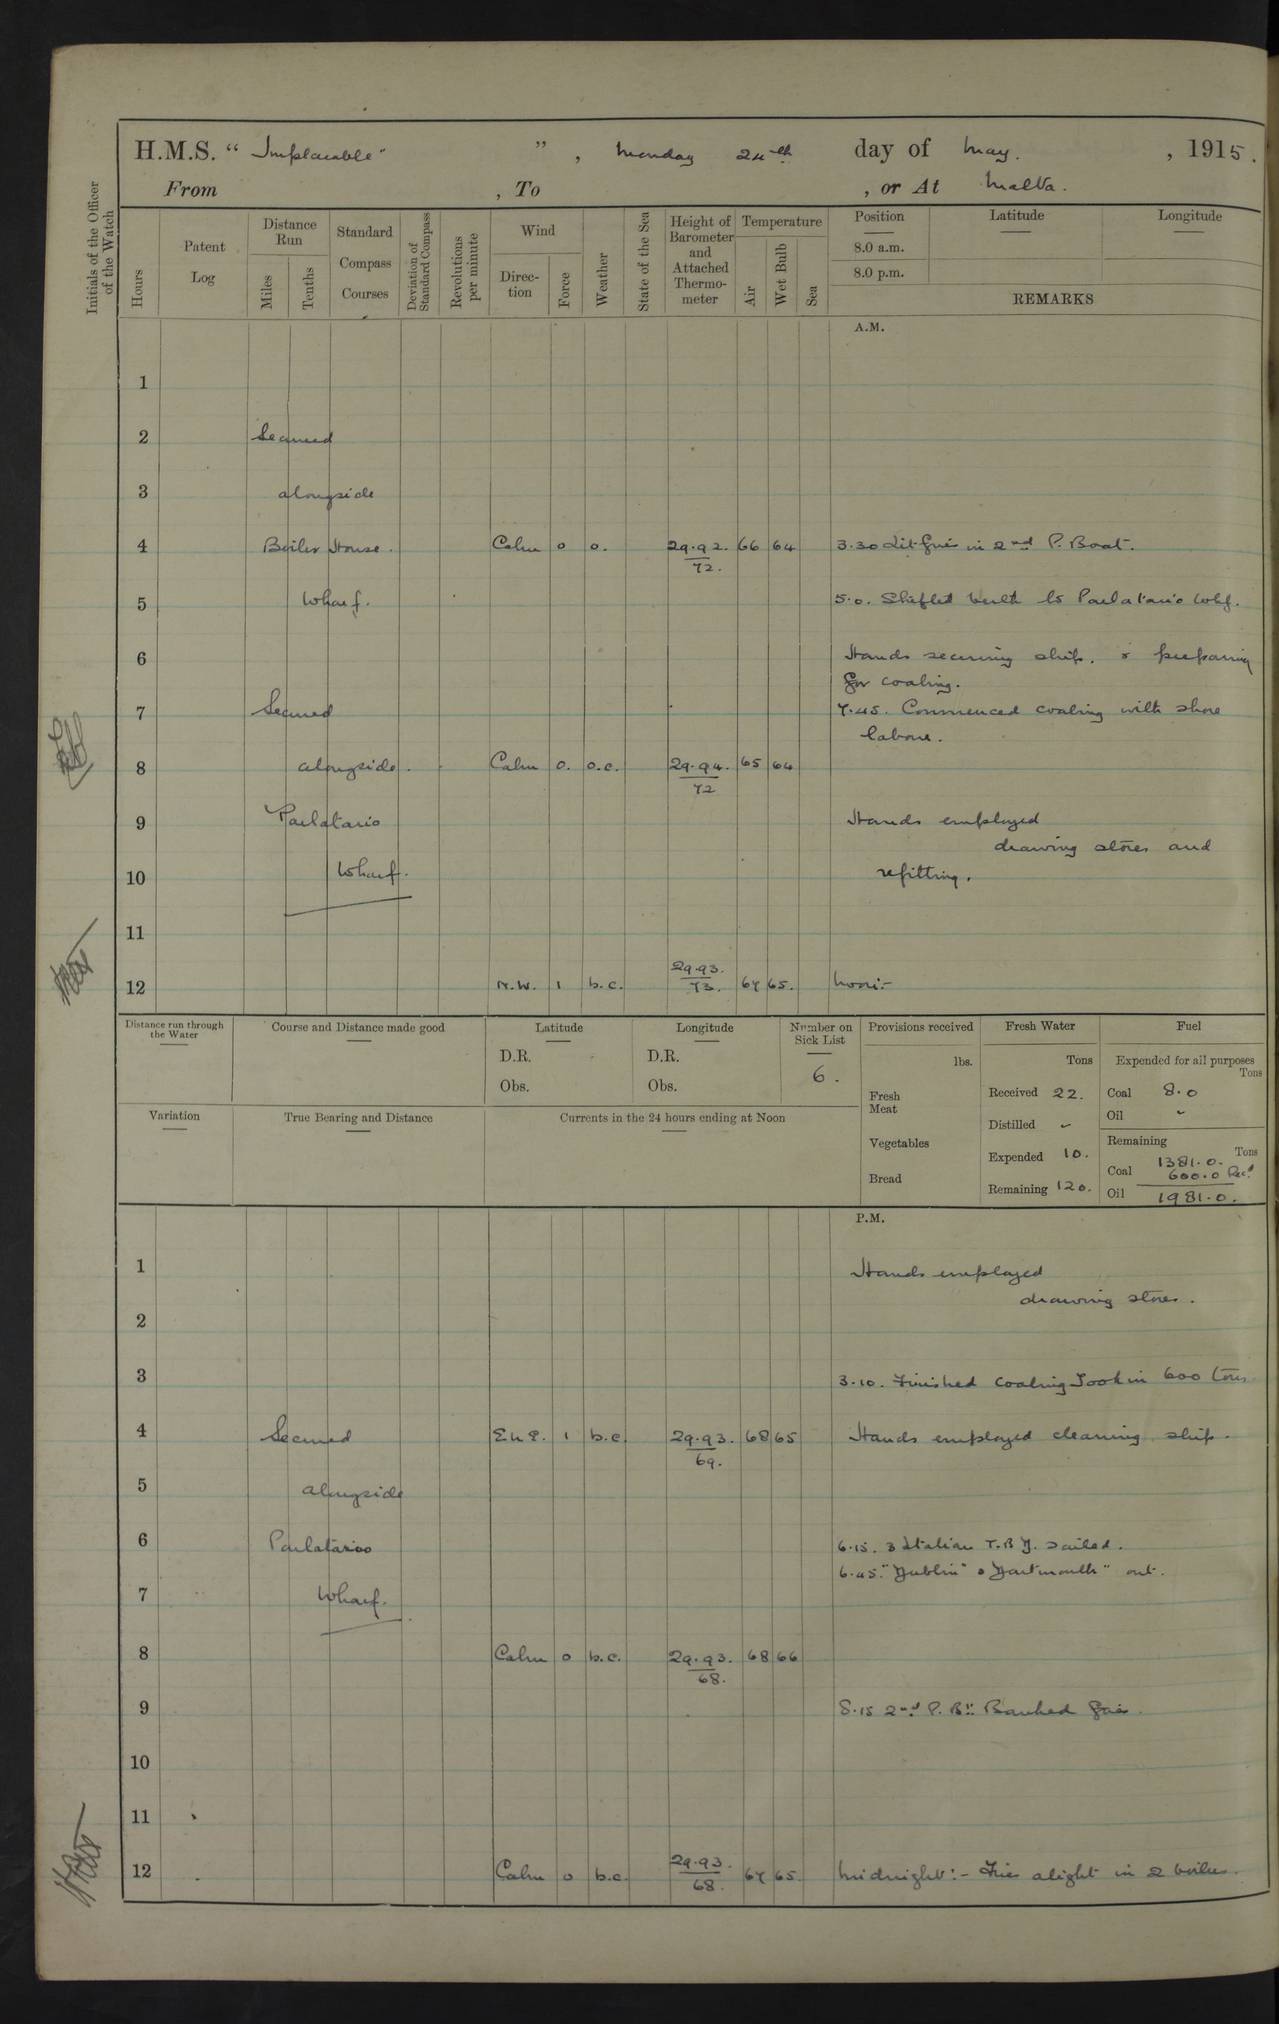 H.M.S. “ Implacable” ” , Monday 24th day of May. , 1915.
From , To , or At Malta.
Initials of the Officer of the Watch
Hours
Patent Log
Distance Run
Miles
Tenths
Standard Compass Courses
Deviation of Standard Compass
Revolutions per minute
Wind
Direction
Force
Weather
State of the Sea
Height of Barometer and Attached Thermometer
Temperature
Air
Wet Bulb
Sea
Position Latitude Longitude
8.0 a.m.
8.0 p.m.
REMARKS
A.M.
1
2 Secured
3 alongside
4 Boiler House. Calm 0 o. 29.92. 66 64 3.30 Lit fires in 2nd P. Boat.
72.
5 Wharf. 5.0. Shifted berth to Parlatario Whf.
6 Hands securing ship. & preparing
for coaling.
7 Secured 7.45. Commenced coaling with shore
labour.
8 alongside. Calm 0. o.c. 29.94. 65 64
72
9 Parlatario Hands employed
drawing stores and
10 Wharf. refitting.
11
12 N.W. 1 b.c. 29.93. 67 65. Noon:-
73.
Distance run through the Water
Course and Distance made good
Latitude
D.R.
Obs.
Longitude
D.R.
Obs.
Number on Sick List
6.
Provisions received
lbs.
Fresh Meat
Vegetables
Bread
Fresh Water
Tons
Received 22.
Distilled -
Expended 10.
Remaining 120.
Fuel
Expended for all purposes
Tons
Coal 8.0
Oil -
Remaining
Tons
1381.0.
Coal 600.0 Recd
Oil 1981.0.
Variation
True Bearing and Distance
Currents in the 24 hours ending at Noon
P.M.
1 Hands employed
drawing stores.
2
3 3.10. Finished coaling Took in 600 tons
4 Secured 1 b.c. 29.93. 68 65 Hands employed cleaning ship.
69.
5 alongside
6 Parlatario 6.15. 3 Italian T.B.D. sailed.
6.45. "Dublin" & "Dartmouth" out.
7 Wharf.
8 Calm 0 b.c. 29.93. 68 66
68.
9 8.15 2nd P. Bt. Banked fires.
10
11
12 Calm 0 b.c. 29.93. 67 65. Midnight:- Fires alight in 2 boilers.
68.